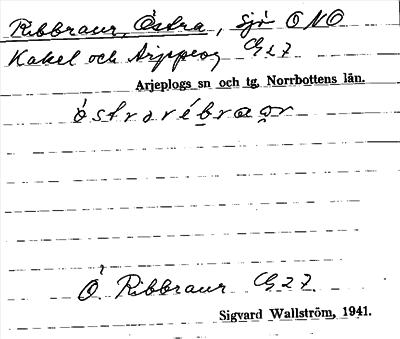 Ribbraur, Östra, sjö ONO
Kakel och Arjeplog G27
Arjeplogs sn och tg, Norrbottens län.
östrarébraọr
Ö. Ribbraur G27.
Sigvard Wallström, 1941.